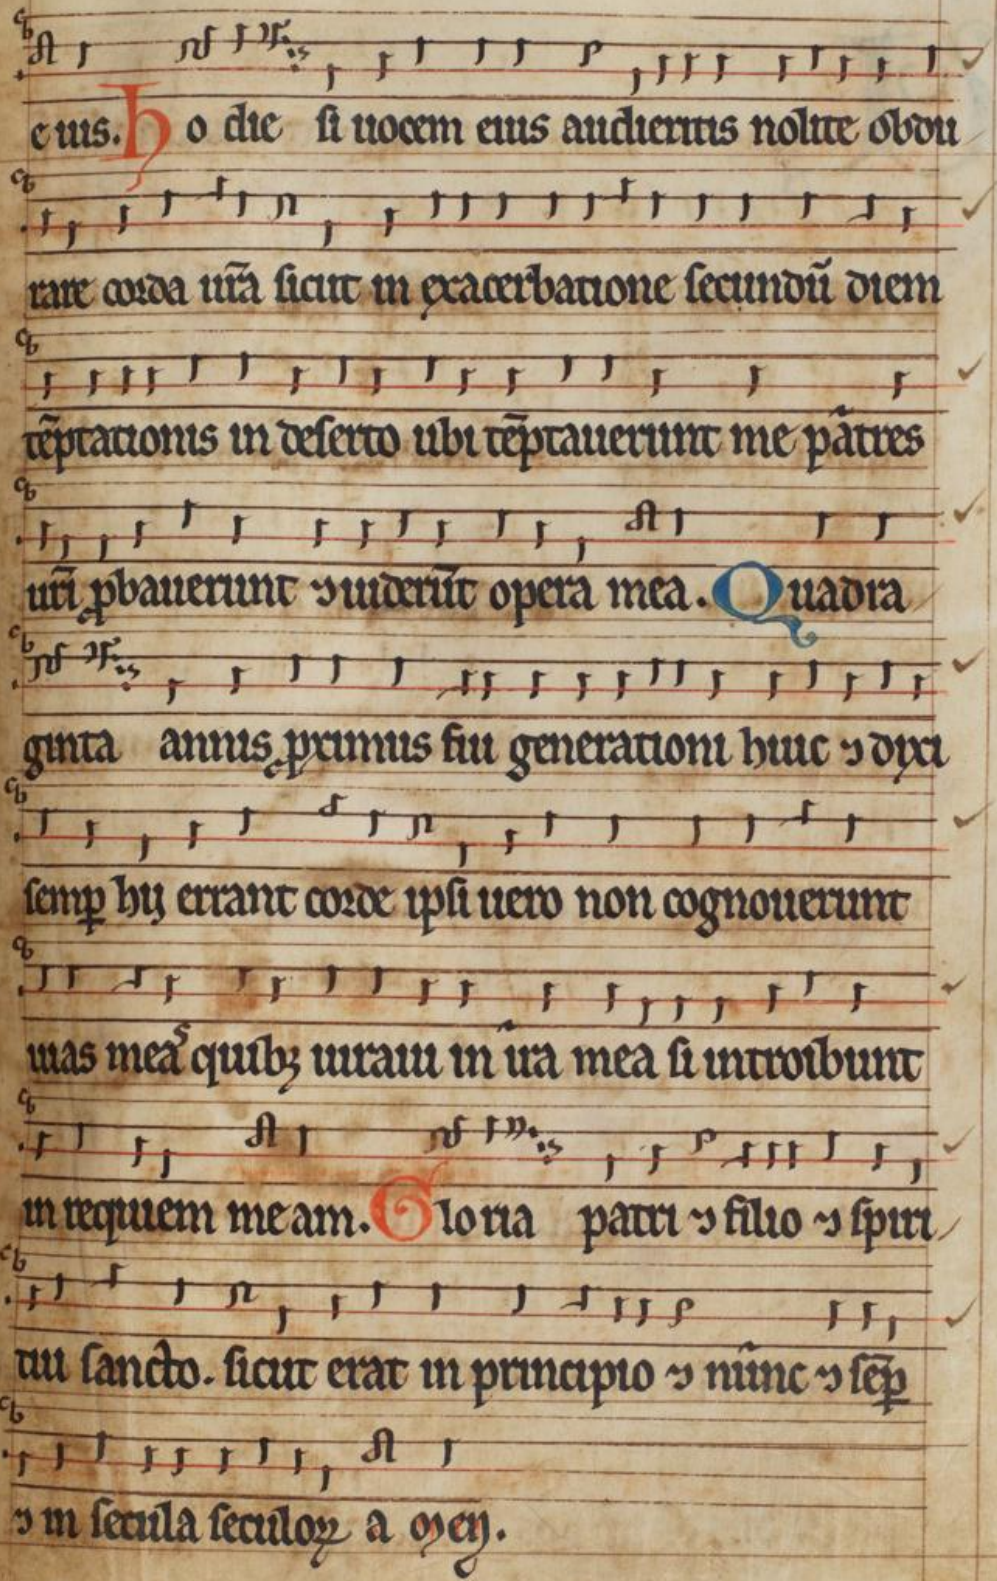 eius. Ho die si uocem eius audieritis nolite obdu
rare corda ur̄a sicut in exacerbatione secundū diem
tēptationis in deserto ubi tēptauerunt me patres
urī ꝓbauerunt ⁊ uiderūt opera mea. Quadra
ginta annis ꝓximus fui generationi huic ⁊ dixi
semꝑ hij errant corde ipsi uero non cognouerunt
uias meas quibꝫ iuraui in ira mea si introibunt
in requiem meam. Gloria patri ⁊ filio ⁊ spiri
tui sancto. sicut erat in principio ⁊ nunc ⁊ sēꝑ
⁊ in secula seculoꝝ a men.